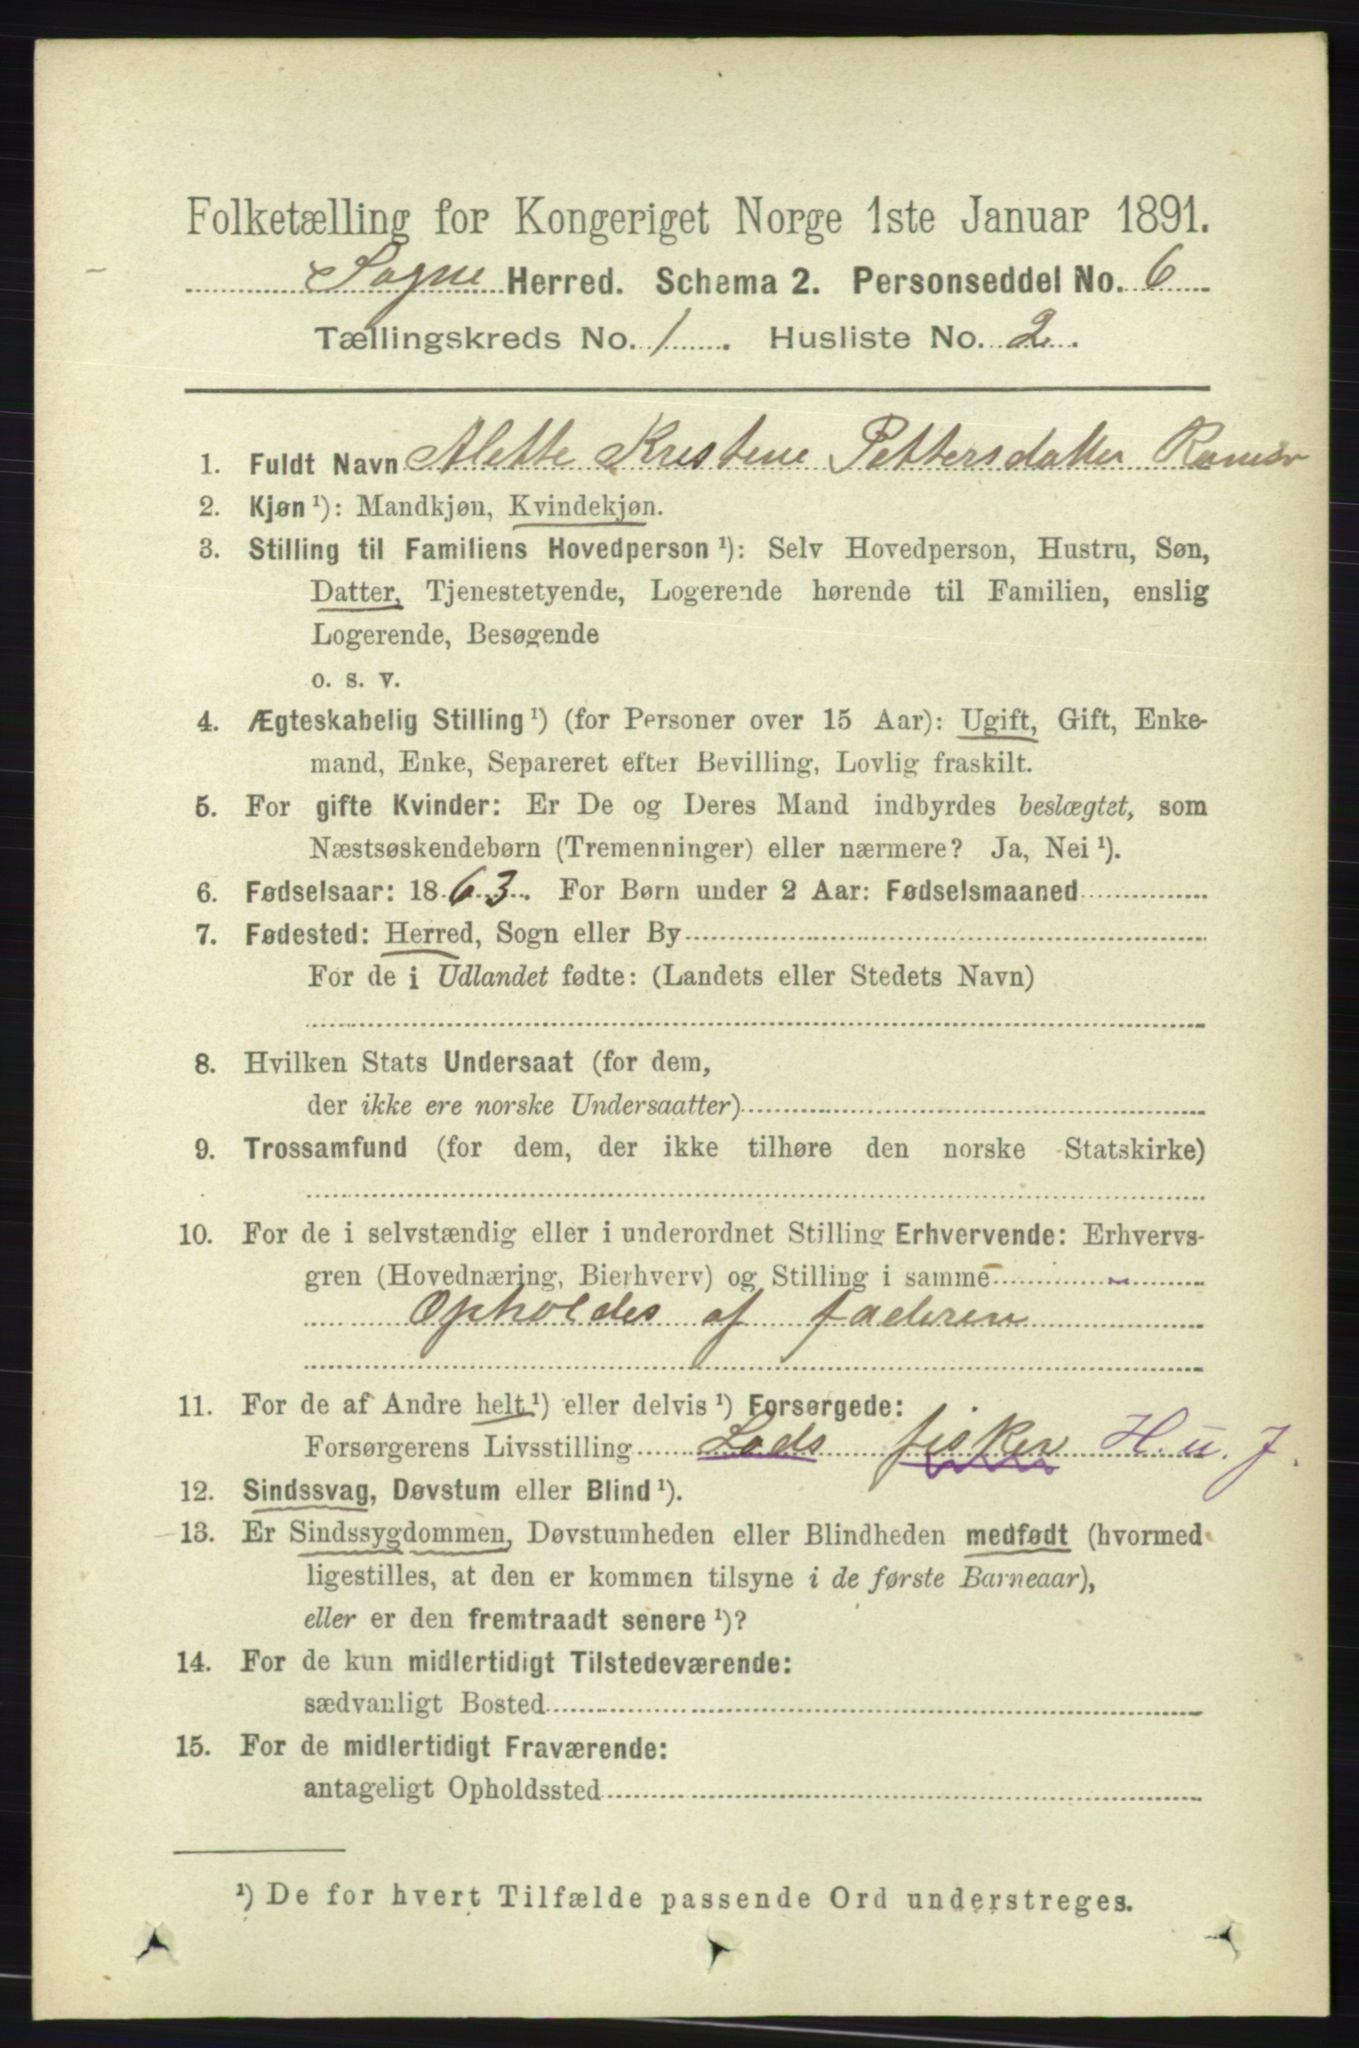 Folketælling for Kongeriget Norge 1ste Januar 1891.
Sogne Herred. Schema 2. Personseddel No. 6
Tællingskreds No. 1. Husliste No. 2.
1. Fuldt Navn Alette Kristene Pettersdatter
2. Kjøn ¹): Mandkjøn, Kvindekjøn.
3. Stilling til Familiens Hovedperson ¹): Selv Hovedperson, Hustru, Søn,
Datter, Tjenestetyende, Logerende hørende til Familien, enslig
Logerende, Besøgende
o. s. v.
4. Ægteskabelig Stilling ¹) (for Personer over 15 Aar): Ugift, Gift, Enke-
mand, Enke, Separeret efter Bevilling, Lovlig fraskilt.
5. For gifte Kvinder: Er De og Deres Mand indbyrdes beslægtet, som
Næstsøskendebørn (Tremenninger) eller nærmere? Ja, Nei ¹).
6. Fødselsaar: 1863. For Børn under 2 Aar: Fødselsmaaned
7. Fødested: Herred, Sogn eller By
For de i Udlandet fødte: (Landets eller Stedets Navn)
8. Hvilken Stats Undersaat (for dem,
der ikke ere norske Undersaatter)
9. Trossamfund (for dem, der ikke tilhøre den norske Statskirke)
10. For de i selvstændig eller i underordnet Stilling Erhvervende: Erhvervs-
gren (Hovednæring, Bierhverv) og Stilling i samme
Opholdes af faderen
11. For de af Andre helt ¹) eller delvis ¹) Forsørgede:
Forsørgerens Livsstilling Lods fisker H. u. J.
12. Sindssvag, Døvstum eller Blind ¹).
13. Er Sindssygdommen, Døvstumheden eller Blindheden medfødt (hvormed
ligestilles, at den er kommen tilsyne i de første Barneaar),
eller er den fremtraadt senere ¹)?
14. For de kun midlertidigt Tilstedeværende:
sædvanligt Bosted
15. For de midlertidigt Fraværende:
antageligt Opholdssted
¹) De for hvert Tilfælde passende Ord understreges.